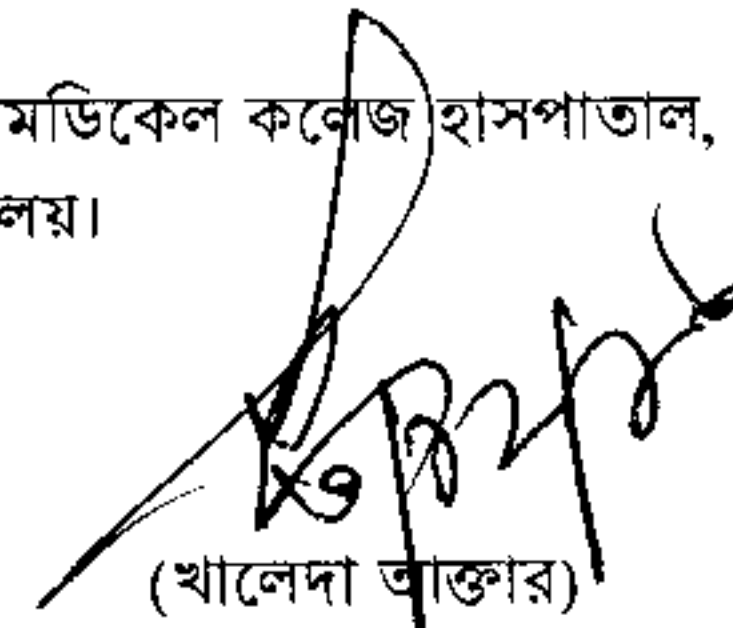 মডিকেল কলেজ হাসপাতাল,
লয়।
(খালেদা আক্তার)